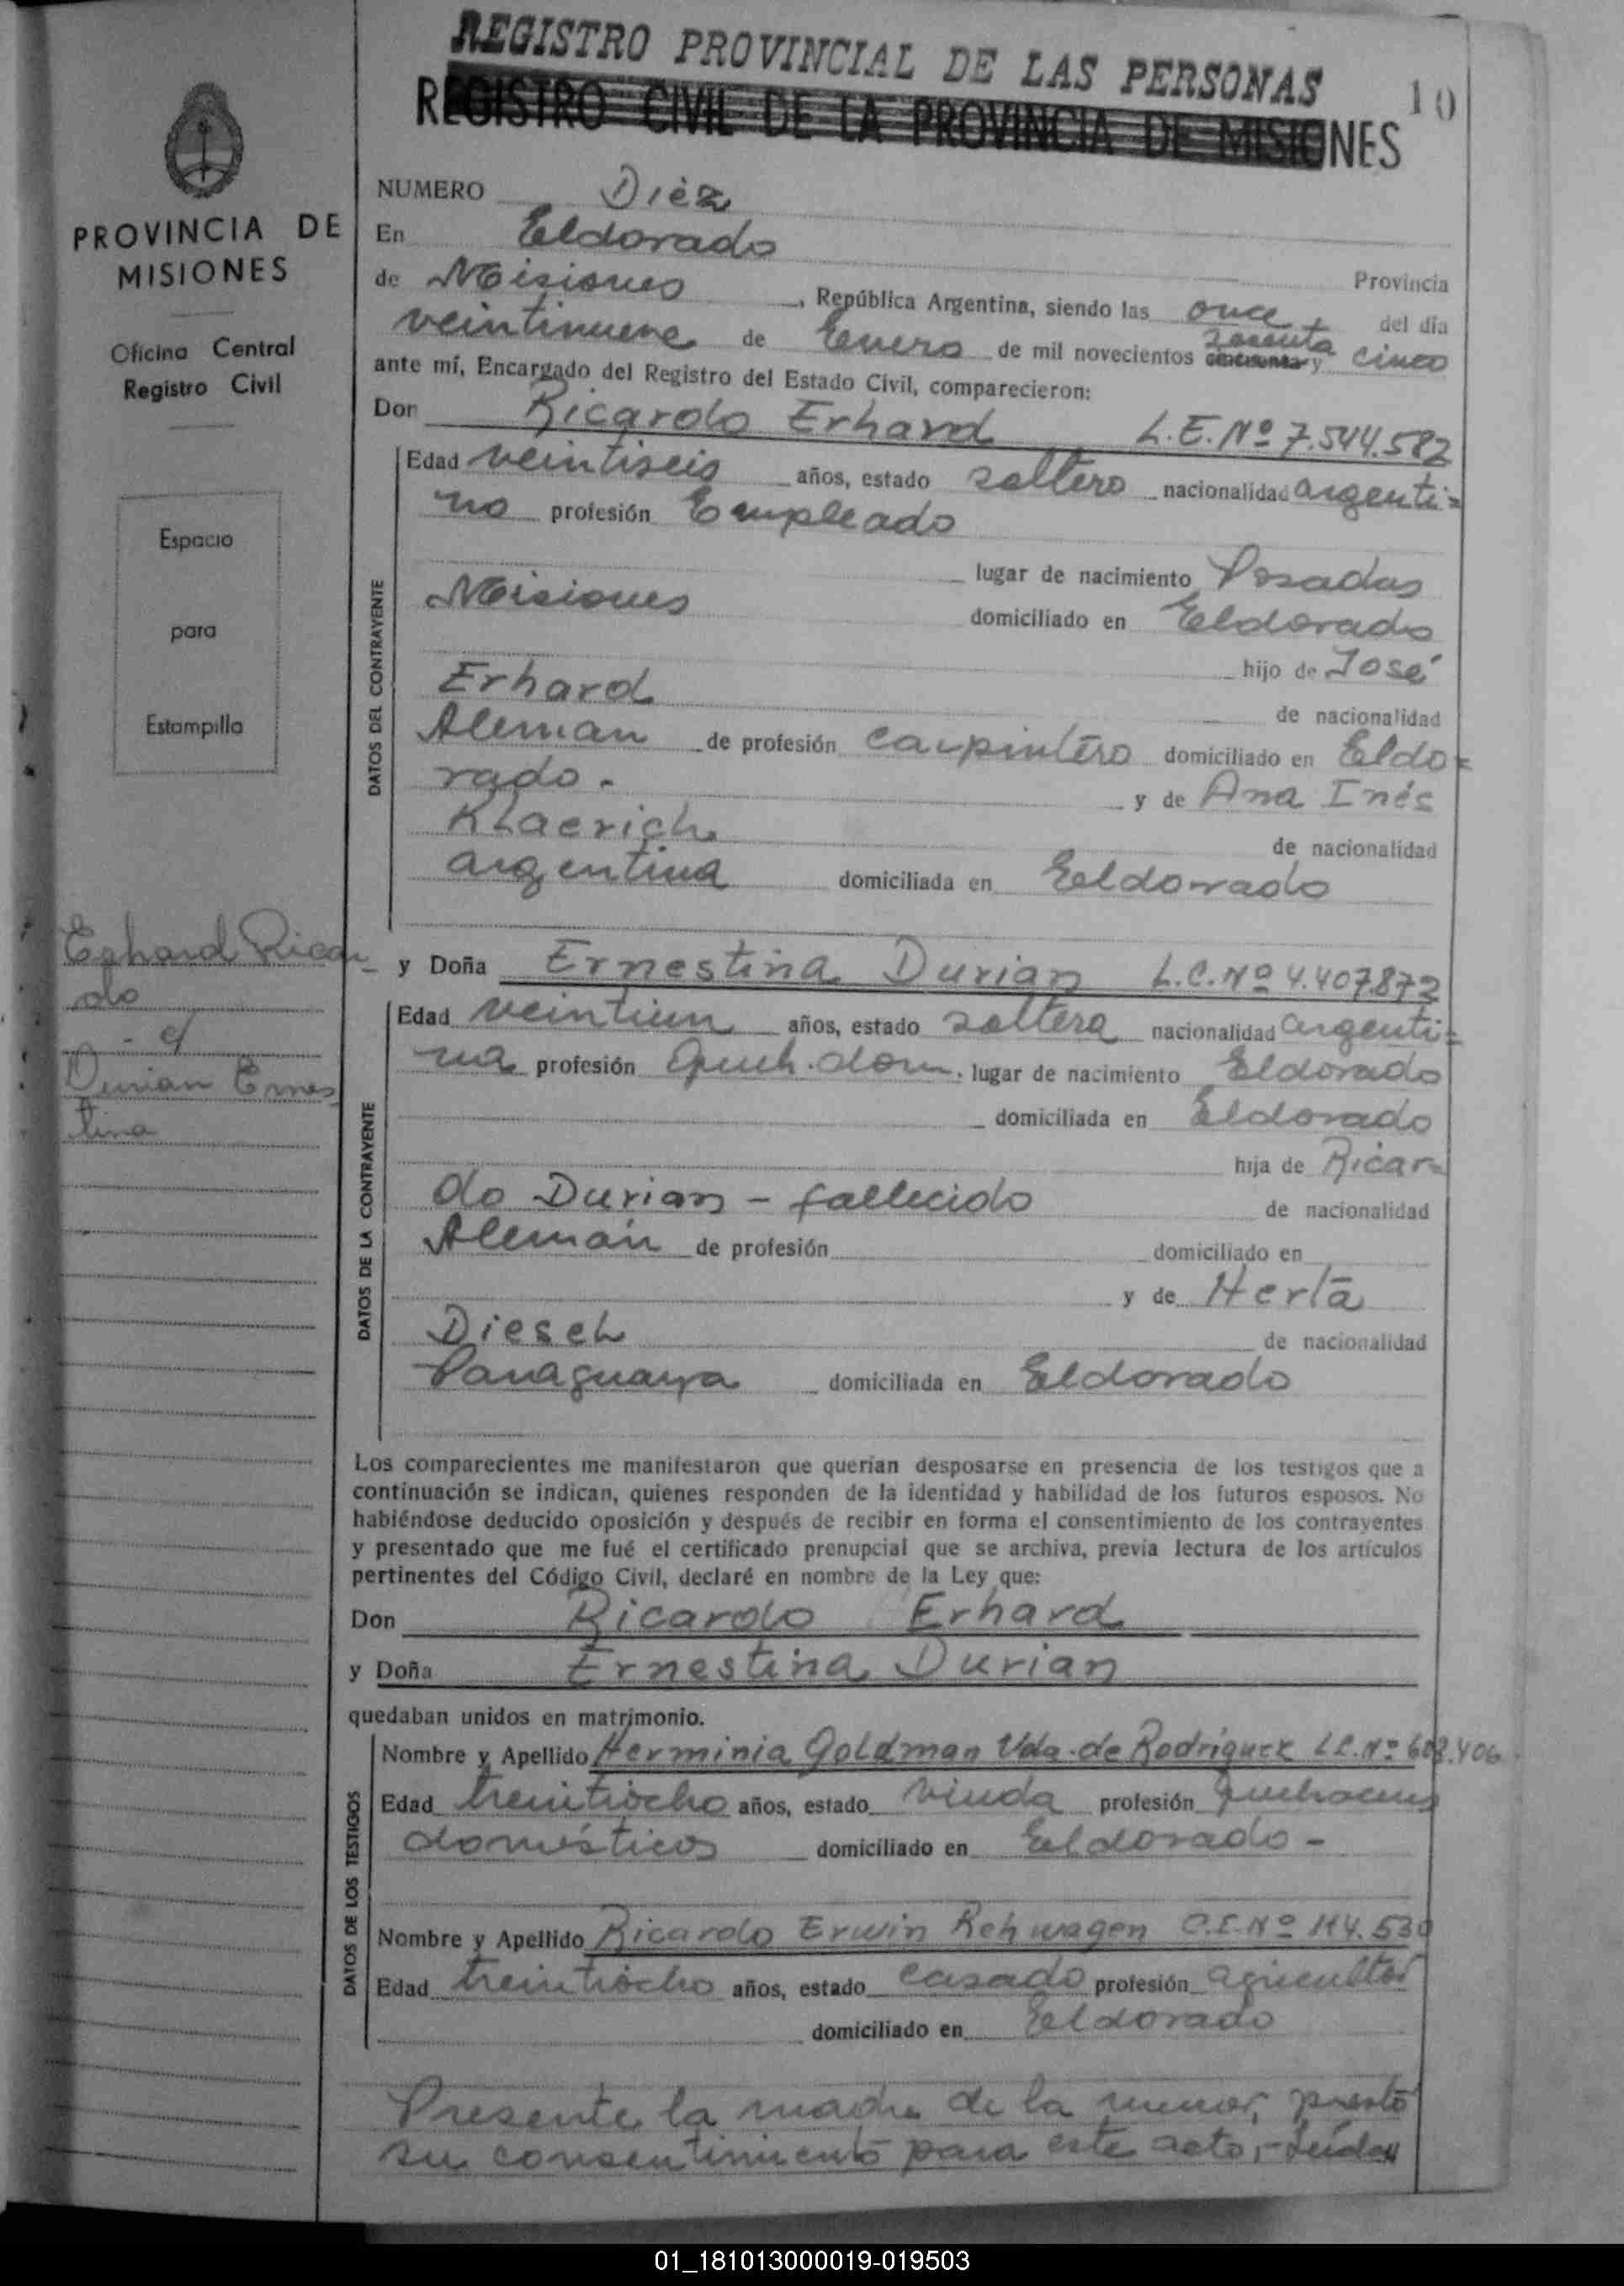 REGISTRO PROVINCIAL DE LAS PERSONAS
REGISTRO CIVIL DE LA PROVINCIA DE MISIONES
10
PROVINCIA DE
MISIONES
Oficina Central
Registro Civil
Espacio
para
Estampilla
Erhard Ricar
do
c/
Durian Ernes
tina
NUMERO Diéz
En Eldorado
Provincia
de Misiones, República Argentina, siendo las once, del día
veintinueve de Enero de mil novecientos cincuenta y sesenta cinco
ante mí, Encargado del Registro del Estado Civil, comparecieron:
Don Ricardo Erhard L.E.Nº 7.544.582
DATOS DEL CONTRAYENTE
Edad veintiseis años, estado soltero nacionalidad argenti=
no profesión Empleado
lugar de nacimiento Posadas
Misiones domiciliado en Eldorado
hijo de José
Erhard de nacionalidad
Aleman de profesión carpintero domiciliado en Eldo=
rado.- y de Ana Inés
Klaerich de nacionalidad
argentina domiciliada en Eldorado
y Doña Ernestina Durian L.C.Nº 4.407.873
DATOS DE LA CONTRAYENTE
Edad veintiun años, estado soltera nacionalidad argenti=
na profesión Queh. dom. lugar de nacimiento Eldorado
domiciliada en Eldorado
hija de Ricar=
do Durian - fallecido de nacionalidad
Alemán de profesión domiciliado en
y de Herta
Diesel de nacionalidad
Paraguaya domiciliada en Eldorado
Los comparecientes me manifestaron que querían desposarse en presencia de los testigos que a
continuación se indican, quienes responden de la identidad y habilidad de los futuros esposos. No
habiéndose deducido oposición y después de recibir en forma el consentimiento de los contrayentes
y presentado que me fué el certificado prenupcial que se archiva, previa lectura de los artículos
pertinentes del Código Civil, declaré en nombre de la Ley que:
Don Ricardo Erhard
y Doña Ernestina Durian
quedaban unidos en matrimonio.
DATOS DE LOS TESTIGOS
Nombre y Apellido Herminia Goldman Vda. de Rodriguez L.C.Nº
Edad treintiocho años, estado viuda profesión Quehaceres
domésticos domiciliado en Eldorado -
Nombre y Apellido Ricardo Erwin Rehwagen C.I.Nº 114.530
Edad treintiocho años, estado casado profesión agricultor
domiciliado en Eldorado
Presente la madre de la menor, prestó
su consentimiento para este acto,- Leída
01_181013000019-019503